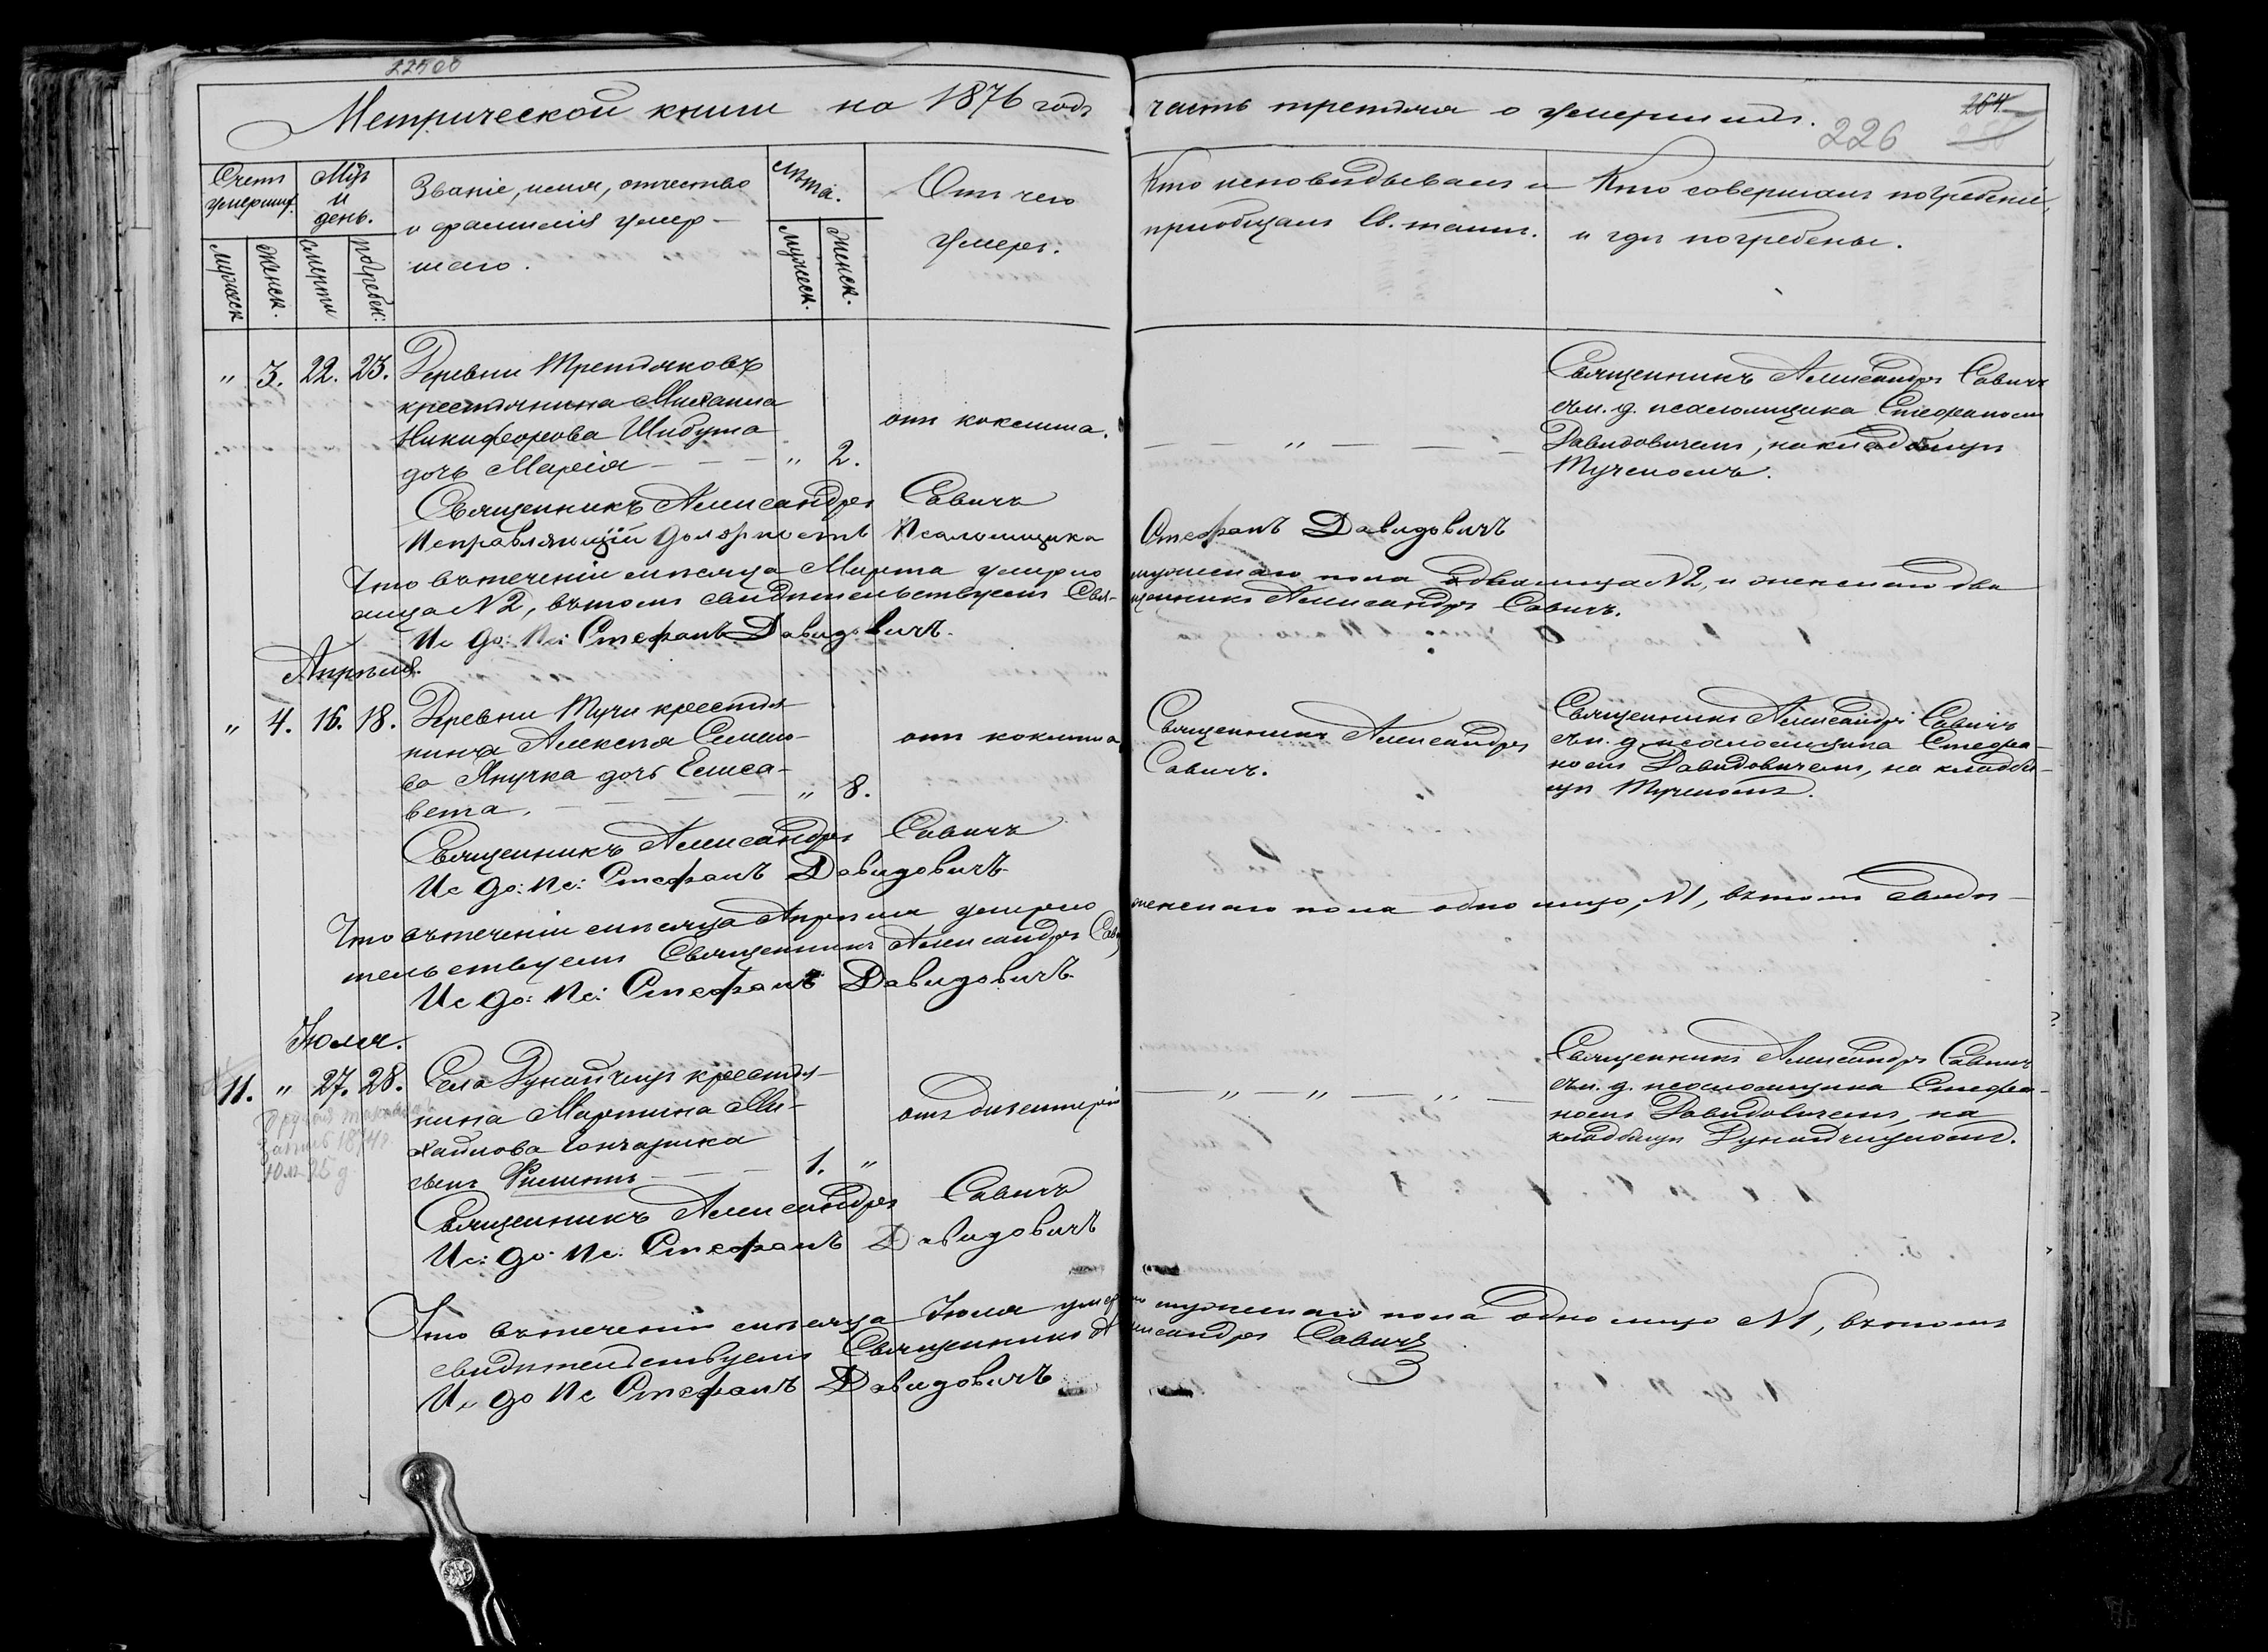 22500
Метрической книги на 1876 годъ часть третья о умершихъ.
264
226
Счетъ умершиx.
Мцъ и день.
Званіе, имя, отчество
и фамилія умер-
шаго.
Лѣта.
Отъ чего
умеръ.
Кто исповѣдывалъ и
пріобщалъ Св. таинъ.
Кто совершалъ погребеніе,
и гдѣ погребены.
Мужеск
Женск.
смерти
погребен:
Мужеск.
Женск.
" 3. 22. 23. Деревни Третьяковъ
крестьянина Михаила
Никифорова Шибута
дочь Марѳія — — — " 2.
отъ коклюша.
— — " — — —
Священникъ Александръ Савичъ
съ и. д. псаломщика Стефаномъ
Давидовичемъ, на кладбищѣ
Тучскомъ.
Священникъ Александръ Савичъ
Исправляющій должность Псаломщика Стефанъ Давидовичъ
Что въ теченіи мѣсяца Марта умерло мужескаго пола два лица №2, и женскаго два
лица №2, въ томъ свидѣтельствуетъ Священникъ Александръ Савичъ.
Ис до: Пс: Стефанъ Давидовичъ.
Апрѣля.
" 4. 16. 18. Деревни Тучи крестья-
нина Алексѣя Семио-
ва Янучка дочь Елиса-
вета. — — — — " 8.
отъ коклюша
Священникъ Александръ
Савичъ.
Священникъ Александръ Савичъ
съ и. д. псаломщика Стефа-
номъ Давидовичемъ, на кладби-
щѣ Тучскомъ.
Священникъ Александръ Савичъ
Ис до: Пс: Стефанъ Давидовичъ
Что въ теченіи мѣсяца Апрѣля умерло женскаго пола одно лицо, №1, въ томъ свидѣ-
тельствуетъ Священникъ Александръ Сави
Ис до: Пс: Стефанъ Давидовичъ.
Іюля.
11. " 27. 28. Села Дунайчицъ крестья-
нина Мартина Ми-
хайлова Гончарика
сынъ Филиппъ — — 1. "
отъ дизентеріи
— " — " — " —
Священникъ Александръ Савичъ
съ и. д. псаломщика Стефа-
номъ Давидовичемъ, на
кладбищѣ Дунайчицкомъ.
запись 1874 г.
Юля 25 д
Священникъ Александръ Савичъ
Ис: до: Пс. Стефанъ Давидовичъ
Что въ теченіи мѣсяца Іюля умерло мужескаго пола одно лицо №1, въ томъ
свидѣтельствуетъ Священникъ Александръ Савичъ
Ис до Пс Стефанъ Давидовичъ